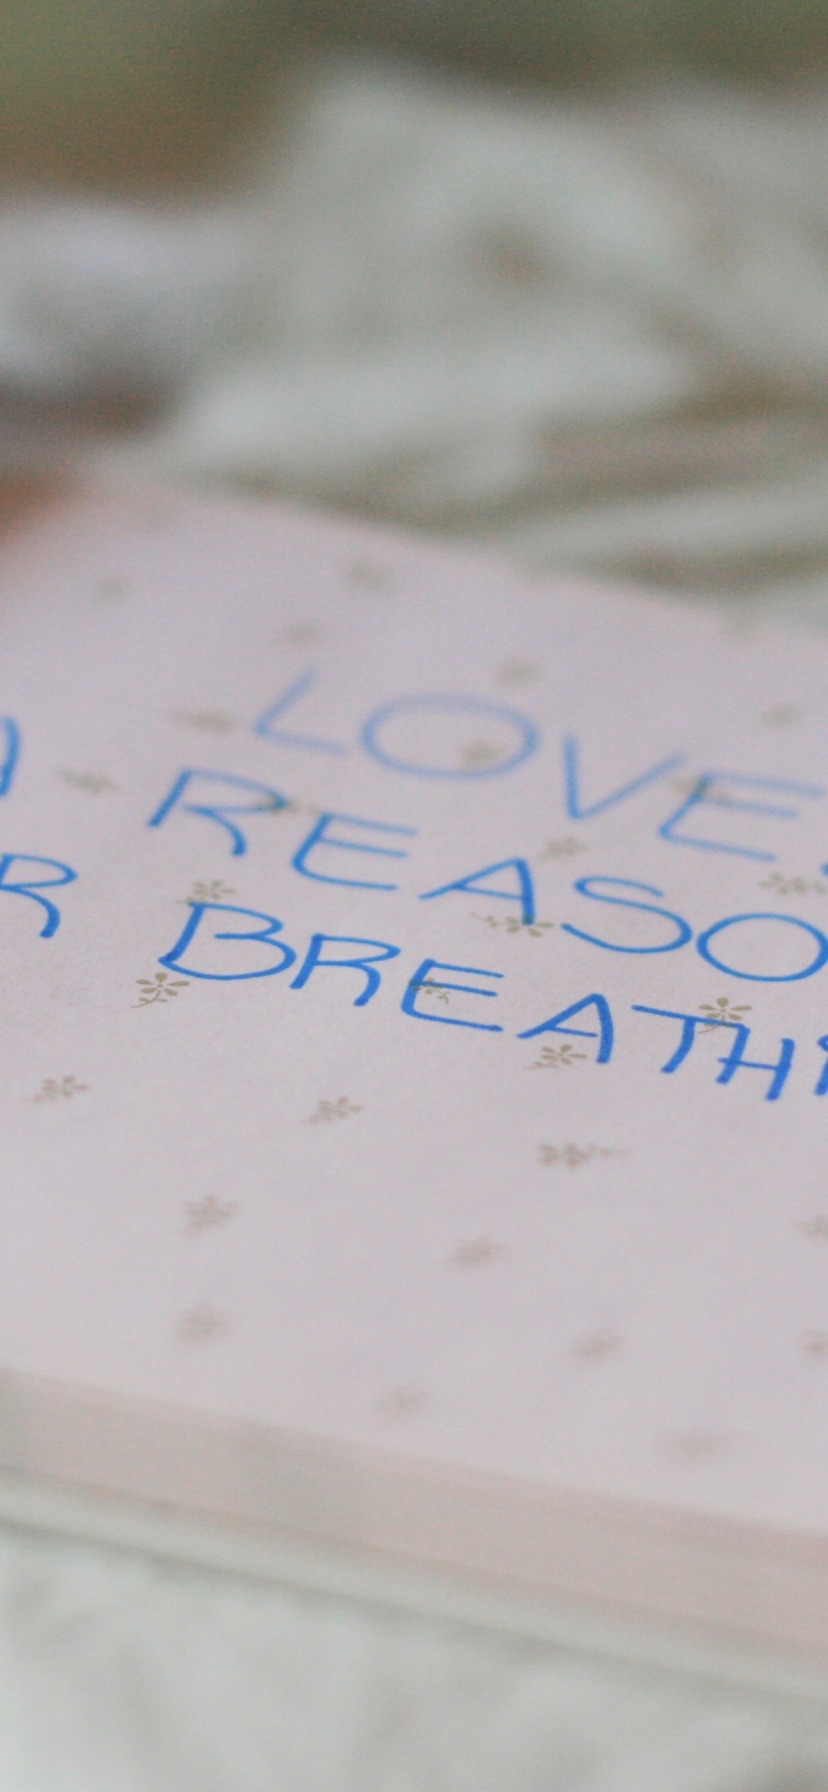 LOVE
REASO
R BREATHI